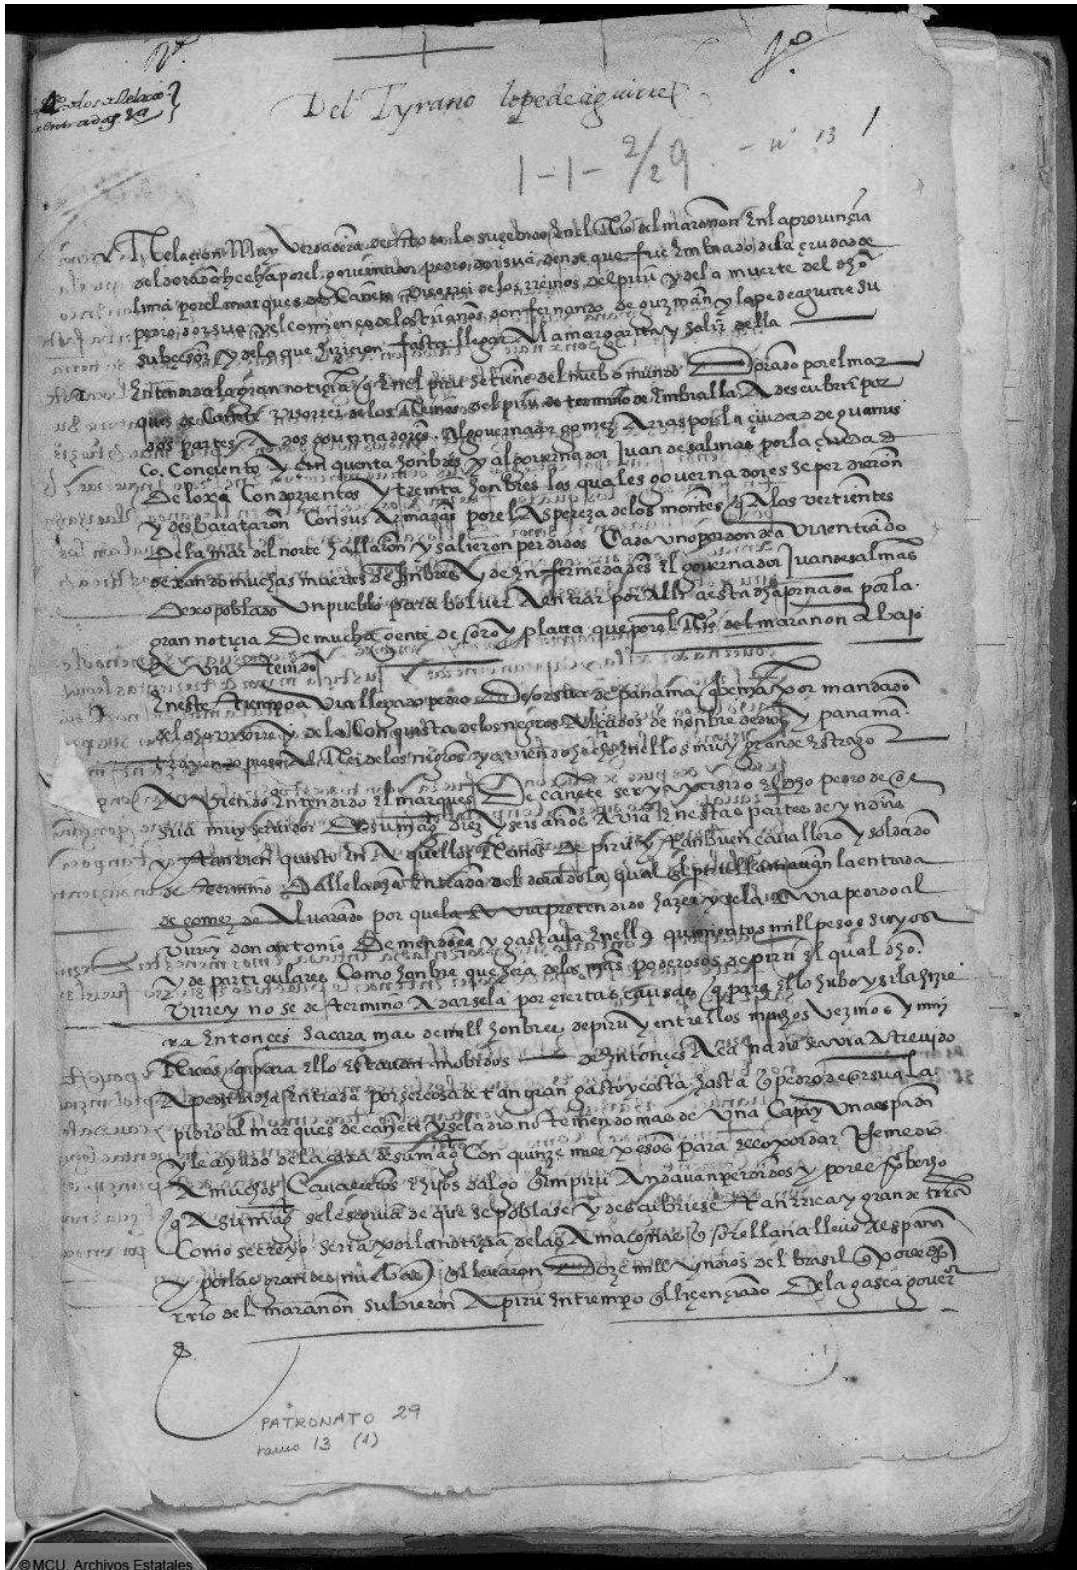 Del Tyrano lope de aguirre
1-1-2/29 - nº 13 1
Relaçion Muy Verdadera de todo lo suçedido en el Rio del marañon En la provinçia
del dorado hecha por el governador pedro dorsua dende que fue Enbiado de la çiudad de
lima por el marques de Cañete Visorrei de los rreinos del piru y de la muerte del dho
pedro dorsua y el comienço de los tiranos don fernando de guzman y lope de aguirre su
subçesor y de lo que hizieron fasta llegar A la margarita y salir della
Entendida la gran notiçia q En el piru se tiene del nuebo mundo Dorado por el mar
ques de Cañete Visorrei de los Reinos del piru de termino de Enbialla A descubrir por
dos partes A dos governadores Al governador gomez Arias por la çiudad de guanu
co Con çiento y çinquenta honbres y al governador Juan de salinas por la çiudad
De loxa Con dozientos y treinta honbres los quales governadores se perdieron
y desbarataron Con sus Armadas por el Aspereza de los montes q A las vertientes
De la mar del norte hallaron y salieron perdidos Cada uno por donde A via entrado
dexando muchas muertes de honbres y de Enfermedades El governador Juan de salinas
Dexo poblado Un pueblo para bolver A entrar por Alli A esta dha jornada por la
gran notiçia De mucha gente de oro y plata que por el Rio del marañon A bajo
A via tenido
En este tiempo A via llegado pedro De orsua de panama por mandado
del dho visorrey de la Conquista de los negros Alçados de nonbre de dios y panama
trayendo preso Al Rei de los negros y aviendo hecho En ellos muy grande Estrago
A Viendo Entendido El marques De cañete ser ya venido El dho pedro de or
sua muy servidor De su mag diez y seis años A via En estas partes de yndias
y tan bien quisto En A quellos Reinos De piru y tan buen cavallero y soldado
de termino Dalle la dha Entrada del dorado la qual En piru llamavan la entrada
de gomez de Alvarado por que la A via pretendido hazer y se la A via pedido al
Virrey don antonio De mendoça y gastava En ello quinientos mill pesos suyos
y de particulares Como honbre que hera de los mas poderosos de piru El qual dho
Virrey no se de termino A darsela por çiertas causas q para Ello hubo y si la hizie
ra Entonçes sacara mas de mill honbres de piru y entre ellos muchos vezinos y muy
Ricos q para Ello Estavan mobidos de Entonçes Aca nadie se avia Atrevido
A pedir la dha Entrada por ser cosa de tan gran gasto y costa hasta q pedro de orsua la
pidio al marques de cañete y se la dio no teniendo mas de Una Capa y Una espada
y le ayudo de la caxa de su mag Con quinze mill pesos para
A muchos Cavalleros E hijos dalgo q En piru Andavan perdidos y por el
q A su mag se le seguia de que se poblase y descubriese tan rrica y grande tierra
Como se creyo seria por la notiçia de las Amaçonas q orellana llevo A españa
y por las grandes nuebas q llevaron Doze mill yndios del brasil q por el dho
rrio del marañon subieron A piru En tiempo q El liçençiado De la gasca gover
PATRONATO 29
ramo 13 (1)
© MCU. Archivos Estatales